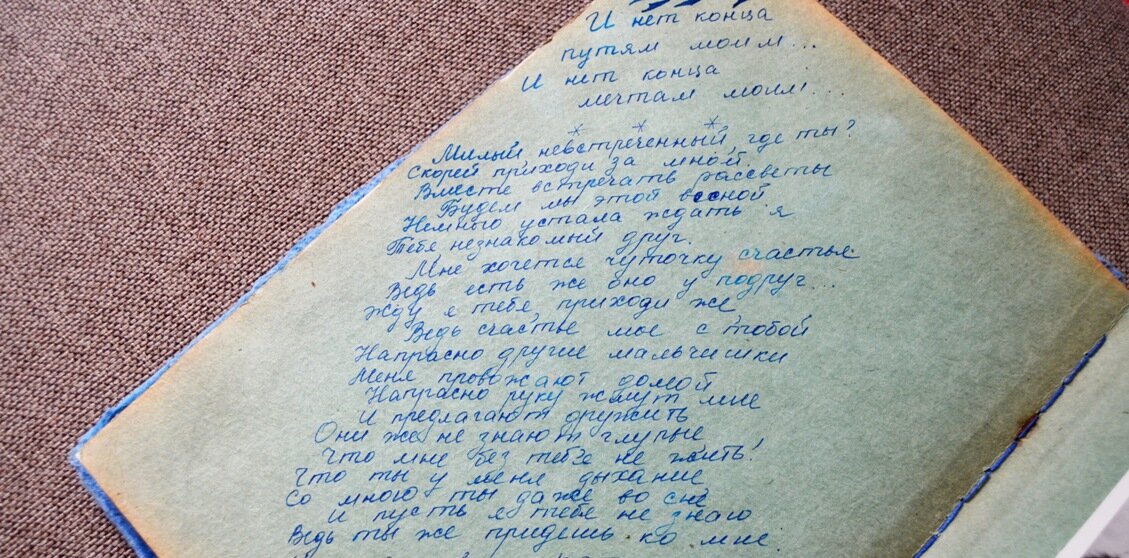 И нет конца
путям моим...
И нет конца
мечтам моим...
* * *
Милый невстреченный, где ты?
Скорей приходи за мной.
Вместе встречать рассветы
Будем мы этой весной
Немного устала ждать я
Тебя незнакомый друг.
Мне хочется чуточку счастья
Ведь есть же оно у подруг...
Жду я тебя, приходи же
Ведь счастье мое с тобой
Напрасно другие мальчишки
Меня провожают домой
Напрасно руку жмут мне
И предлагают дружить
Они же не знают глупые
Что мне без тебя не жить!
Что ты у меня дыхание
Со мною ты даже во сне
И пусть я тебя не знаю
Ведь ты же придешь ко мне.